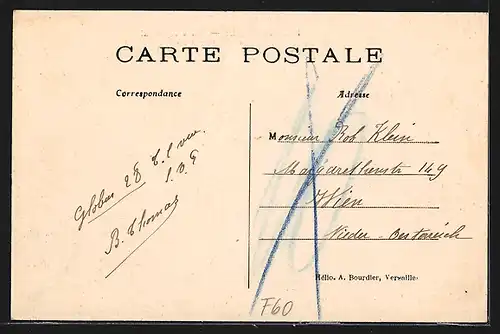 CARTE POSTALE
Correspondance
Adresse
Monsieur Rob Klein
Margarethenstr 149
Wien
Nieder-Oesterreich
Globus 28
B. Thomas
Hélio. A. Bourdier, Versailles
F60